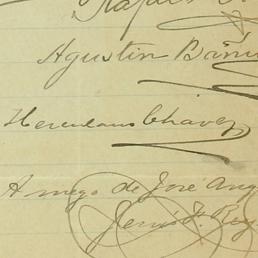 Rafael
Agustin Bañu
Herculano Chavez
A ruego de José Ang
Jesús F. Rey